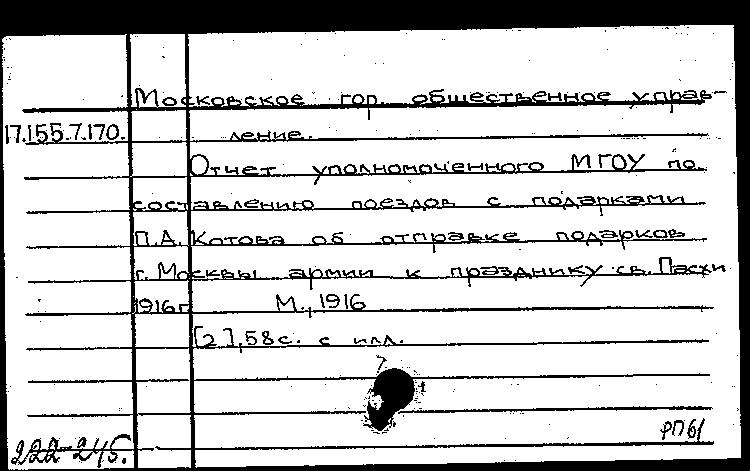 Московское гор. общественное управ-
17.155.7.170. ление.
Отчет уполномоченного МГОУ по
составлению поездов с подарками
П.А. Котова об отправке подарков
г. Москвы армии к празднику св. Пасхи
1916г. М., 1916
[2], 58с. с илл.
РП61
222-245.